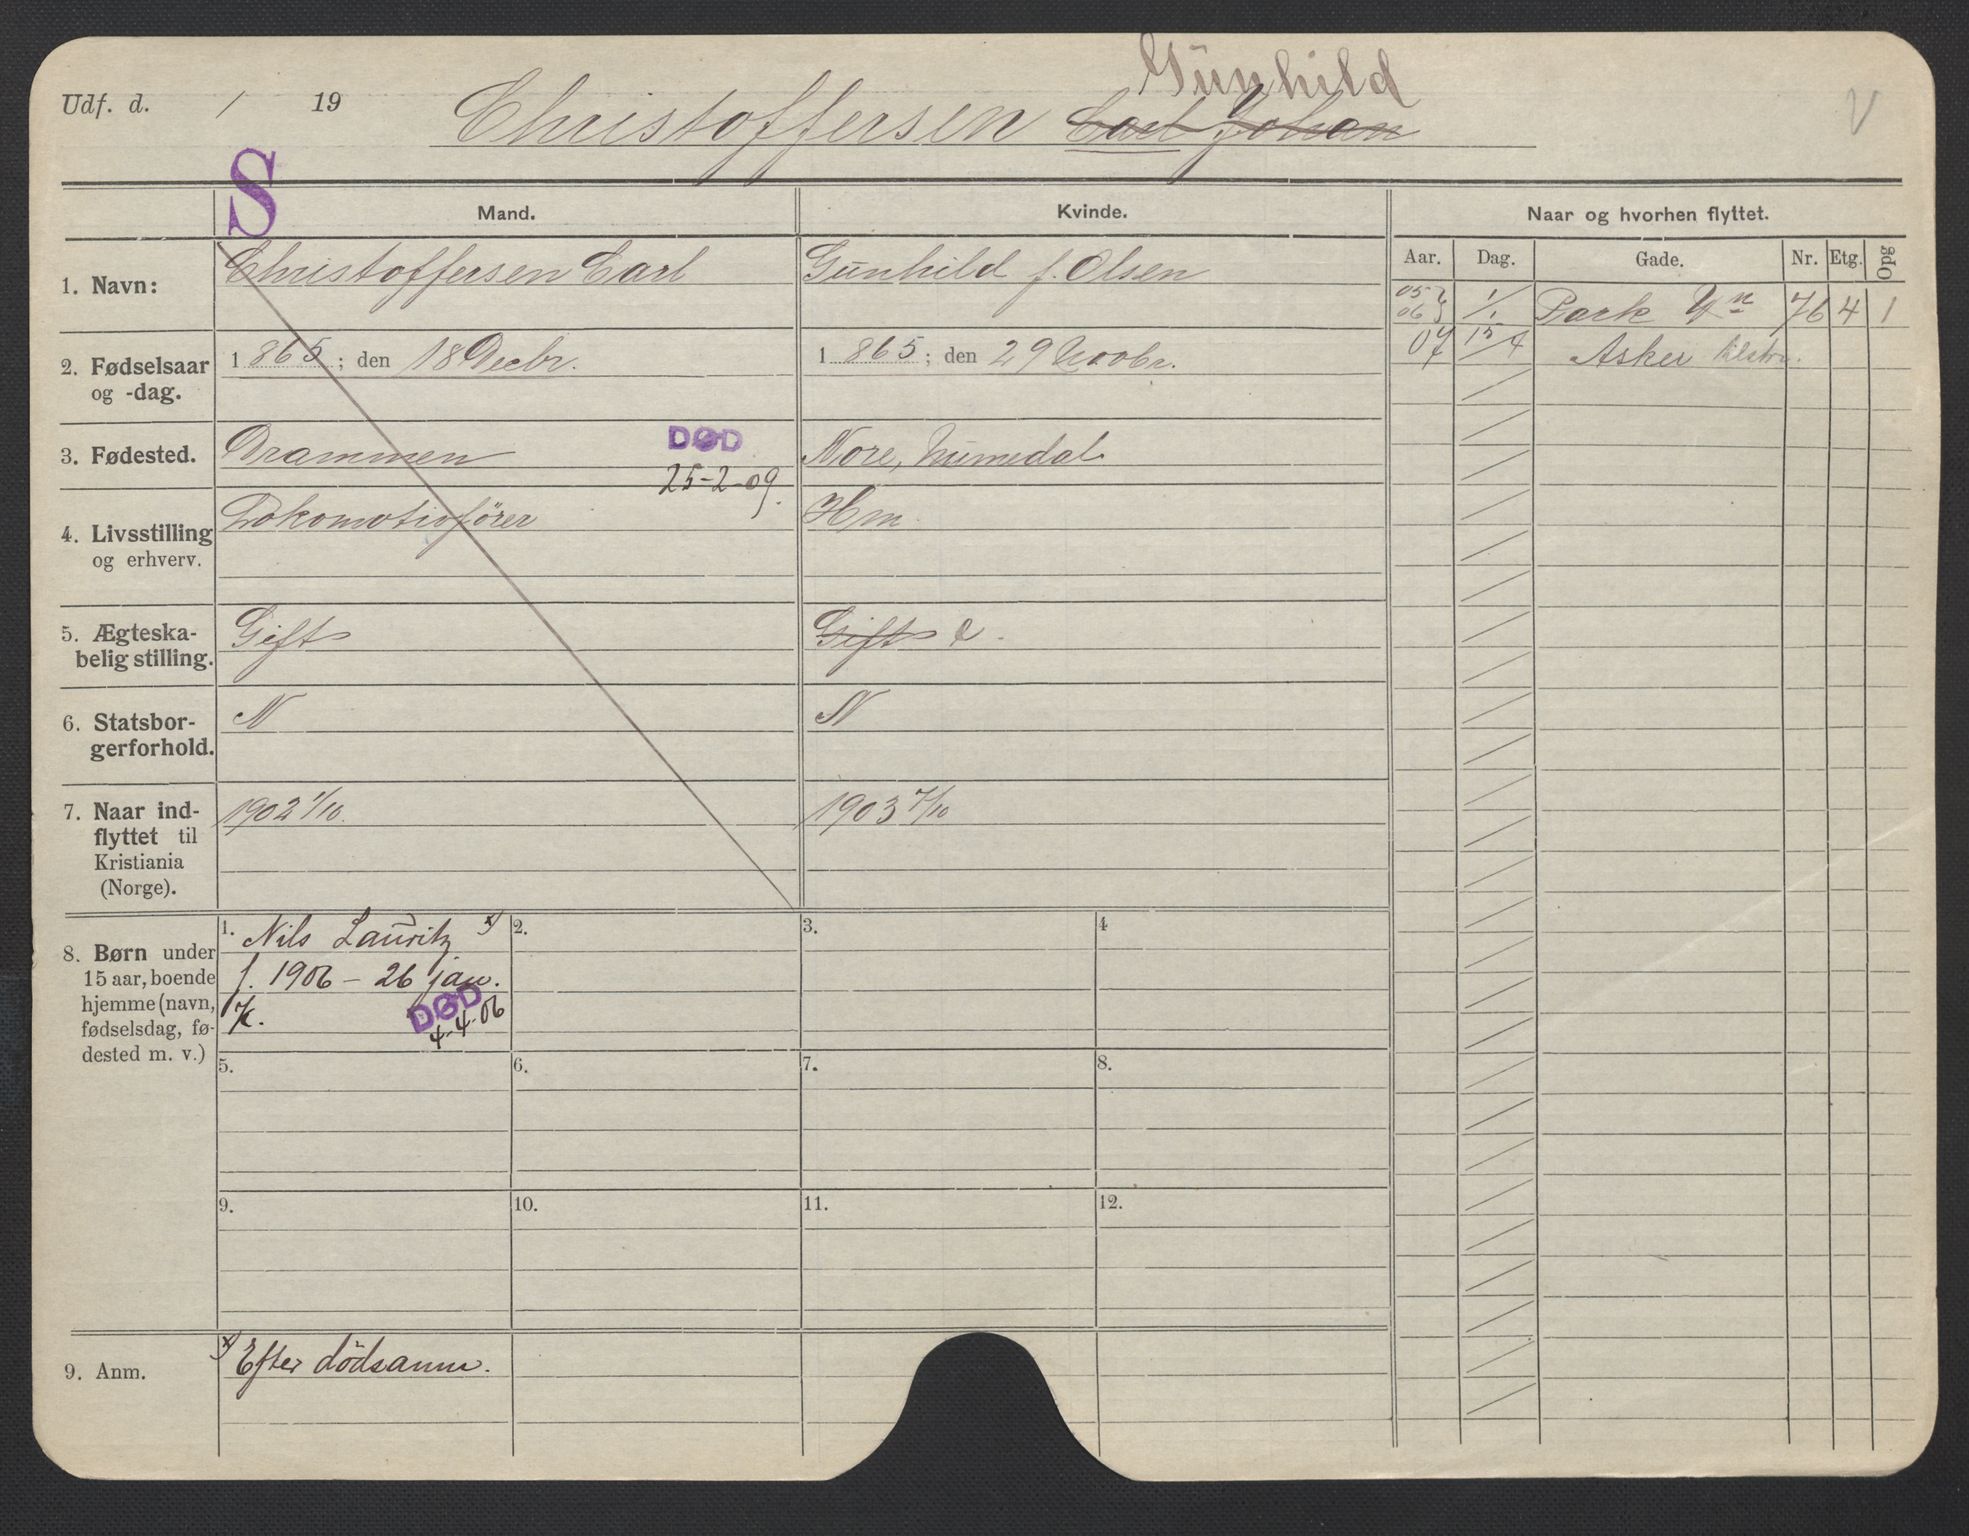 Gunhild
Udf. d. / 19 Christoffersen Carl Johan
S
Mand. Kvinde. Naar og hvorhen flyttet.
Aar. Dag. Gade. Nr. Etg. Opg
1. Navn: Christoffersen Carl Gunhild f. Olsen
05 06 1/1 Park 76 4 1
07 15/4 Asker
2. Fødselsaar og -dag. 1865; den 18 Decbr. 1865; den 29 Novbr.
3. Fødested. Drammen DØD Nore, Numedal
25-2-09.
4. Livsstilling og erhverv. Lokomotivfører Hm
5. Ægteska-
belig stilling. Gift Gift e.
6. Statsbor-
gerforhold. N N
7. Naar ind-
flyttet til
Kristiania
(Norge). 1902 1/10. 1903 7/10
8. Børn under
15 aar, boende
hjemme (navn,
fødselsdag, fø-
dested m. v.)
1. Nils Lauritz x) 2. 3. 4
f. 1906 - 26 jan.
K. DØD
4-4-06
5. 6. 7. 8.
9. 10. 11. 12.
9. Anm. x) Efter dödsanm.